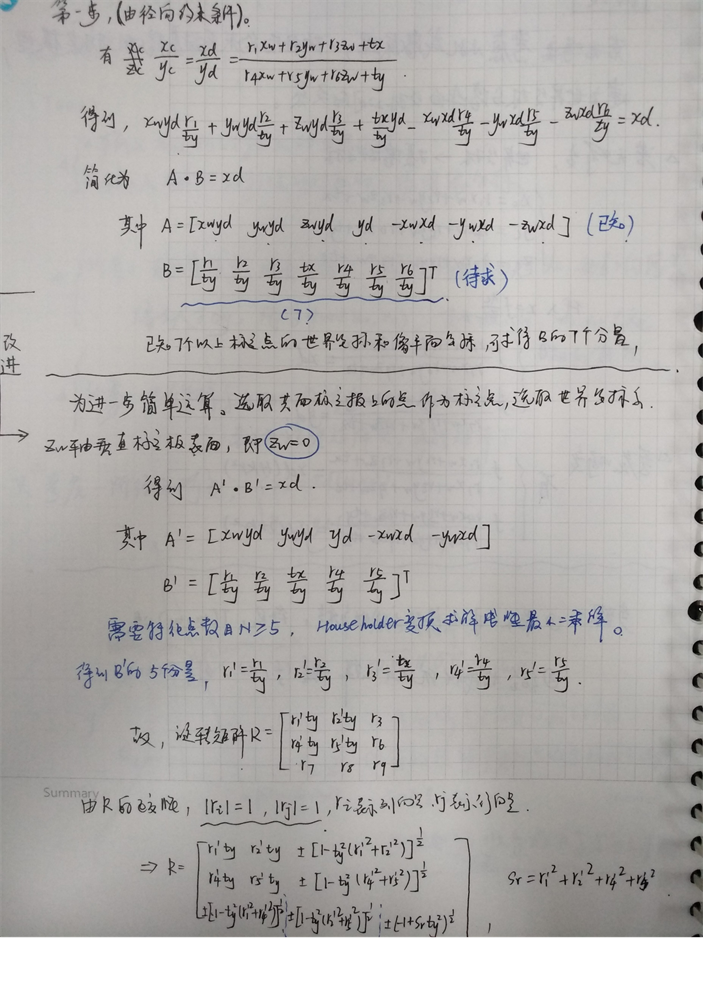 第一步,(由径向约束条件)。
有 xc/yc = xd/yd = (r1xw+r2yw+r3zw+tx)/(r4xw+r5yw+r6zw+ty).
得到, xwyd r1/ty + ywyd r2/ty + zwyd r3/ty + tx/ty yd - xwxd r4/ty - ywxd r5/ty - zwxd r6/ty = xd.
简化为 A·B=xd
其中 A=[xwyd ywyd zwyd yd -xwxd -ywxd -zwxd] (已知)
B=[r1/ty r2/ty r3/ty tx/ty r4/ty r5/ty r6/ty]T (待求)
(7)
已知7个以上标定点的世界坐标和像平面坐标,可求得B的7个分量,
改进
为进一步简单运算。选取共面标定板上的点作为标定点,选取世界坐标系.
zw轴垂直标定板表面,即 zw=0
得到 A'·B'=xd.
其中 A'=[xwyd ywyd yd -xwxd -ywxd]
B'=[r1/ty r2/ty tx/ty r4/ty r5/ty]T
需要特征点数目N≥5, Householder变换求解线性最小二乘解。
得到B'的5个分量, r1'=r1/ty, r2'=r2/ty, r3'=tx/ty, r4'=r4/ty, r5'=r5/ty.
故,旋转矩阵R=[r1'ty r2'ty r3
r4'ty r5'ty r6
r7 r8 r9]
Summary
由R的正交性, |ri|=1, |rj|=1, ri表示列向量.rj表示行向量.
⇒ R=[r1'ty r2'ty ±[1-ty²(r1'²+r2'²)]^½
r4'ty r5'ty ±[1-ty²(r4'²+r5'²)]^½
±[1-ty²(r1'²+r4'²)]^½ ±[1-ty²(r2'²+r5'²)]^½ ±(-1+Srty²)^½],
Sr=r1'²+r2'²+r4'²+r5'²